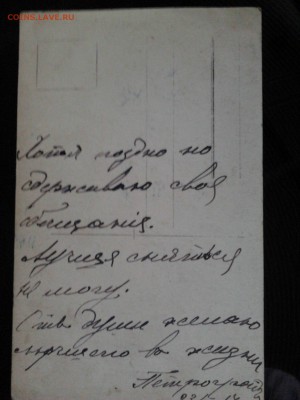 COINS.LAVE.RU
Хотя поздно но
сдерживаю своя
обещания.
Лучшя сняться
не могу.
От души желаю
лучшего в жизни
Петроград